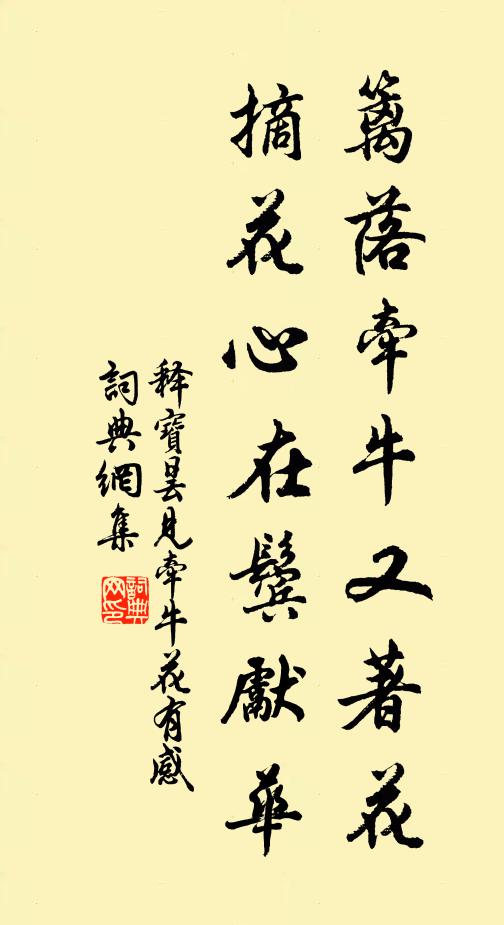 篱落牽牛又著花
摘花心在鬢獻華
释寶昙見牽牛花有感
詞典網集
詞典网印